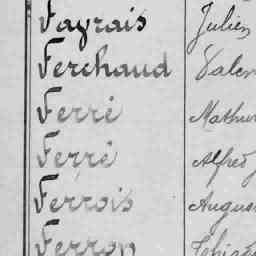 Fayrais Julien
Ferchaud Valen
Ferré Mathur
Ferré Alfred
Ferrois Augus
Ferron